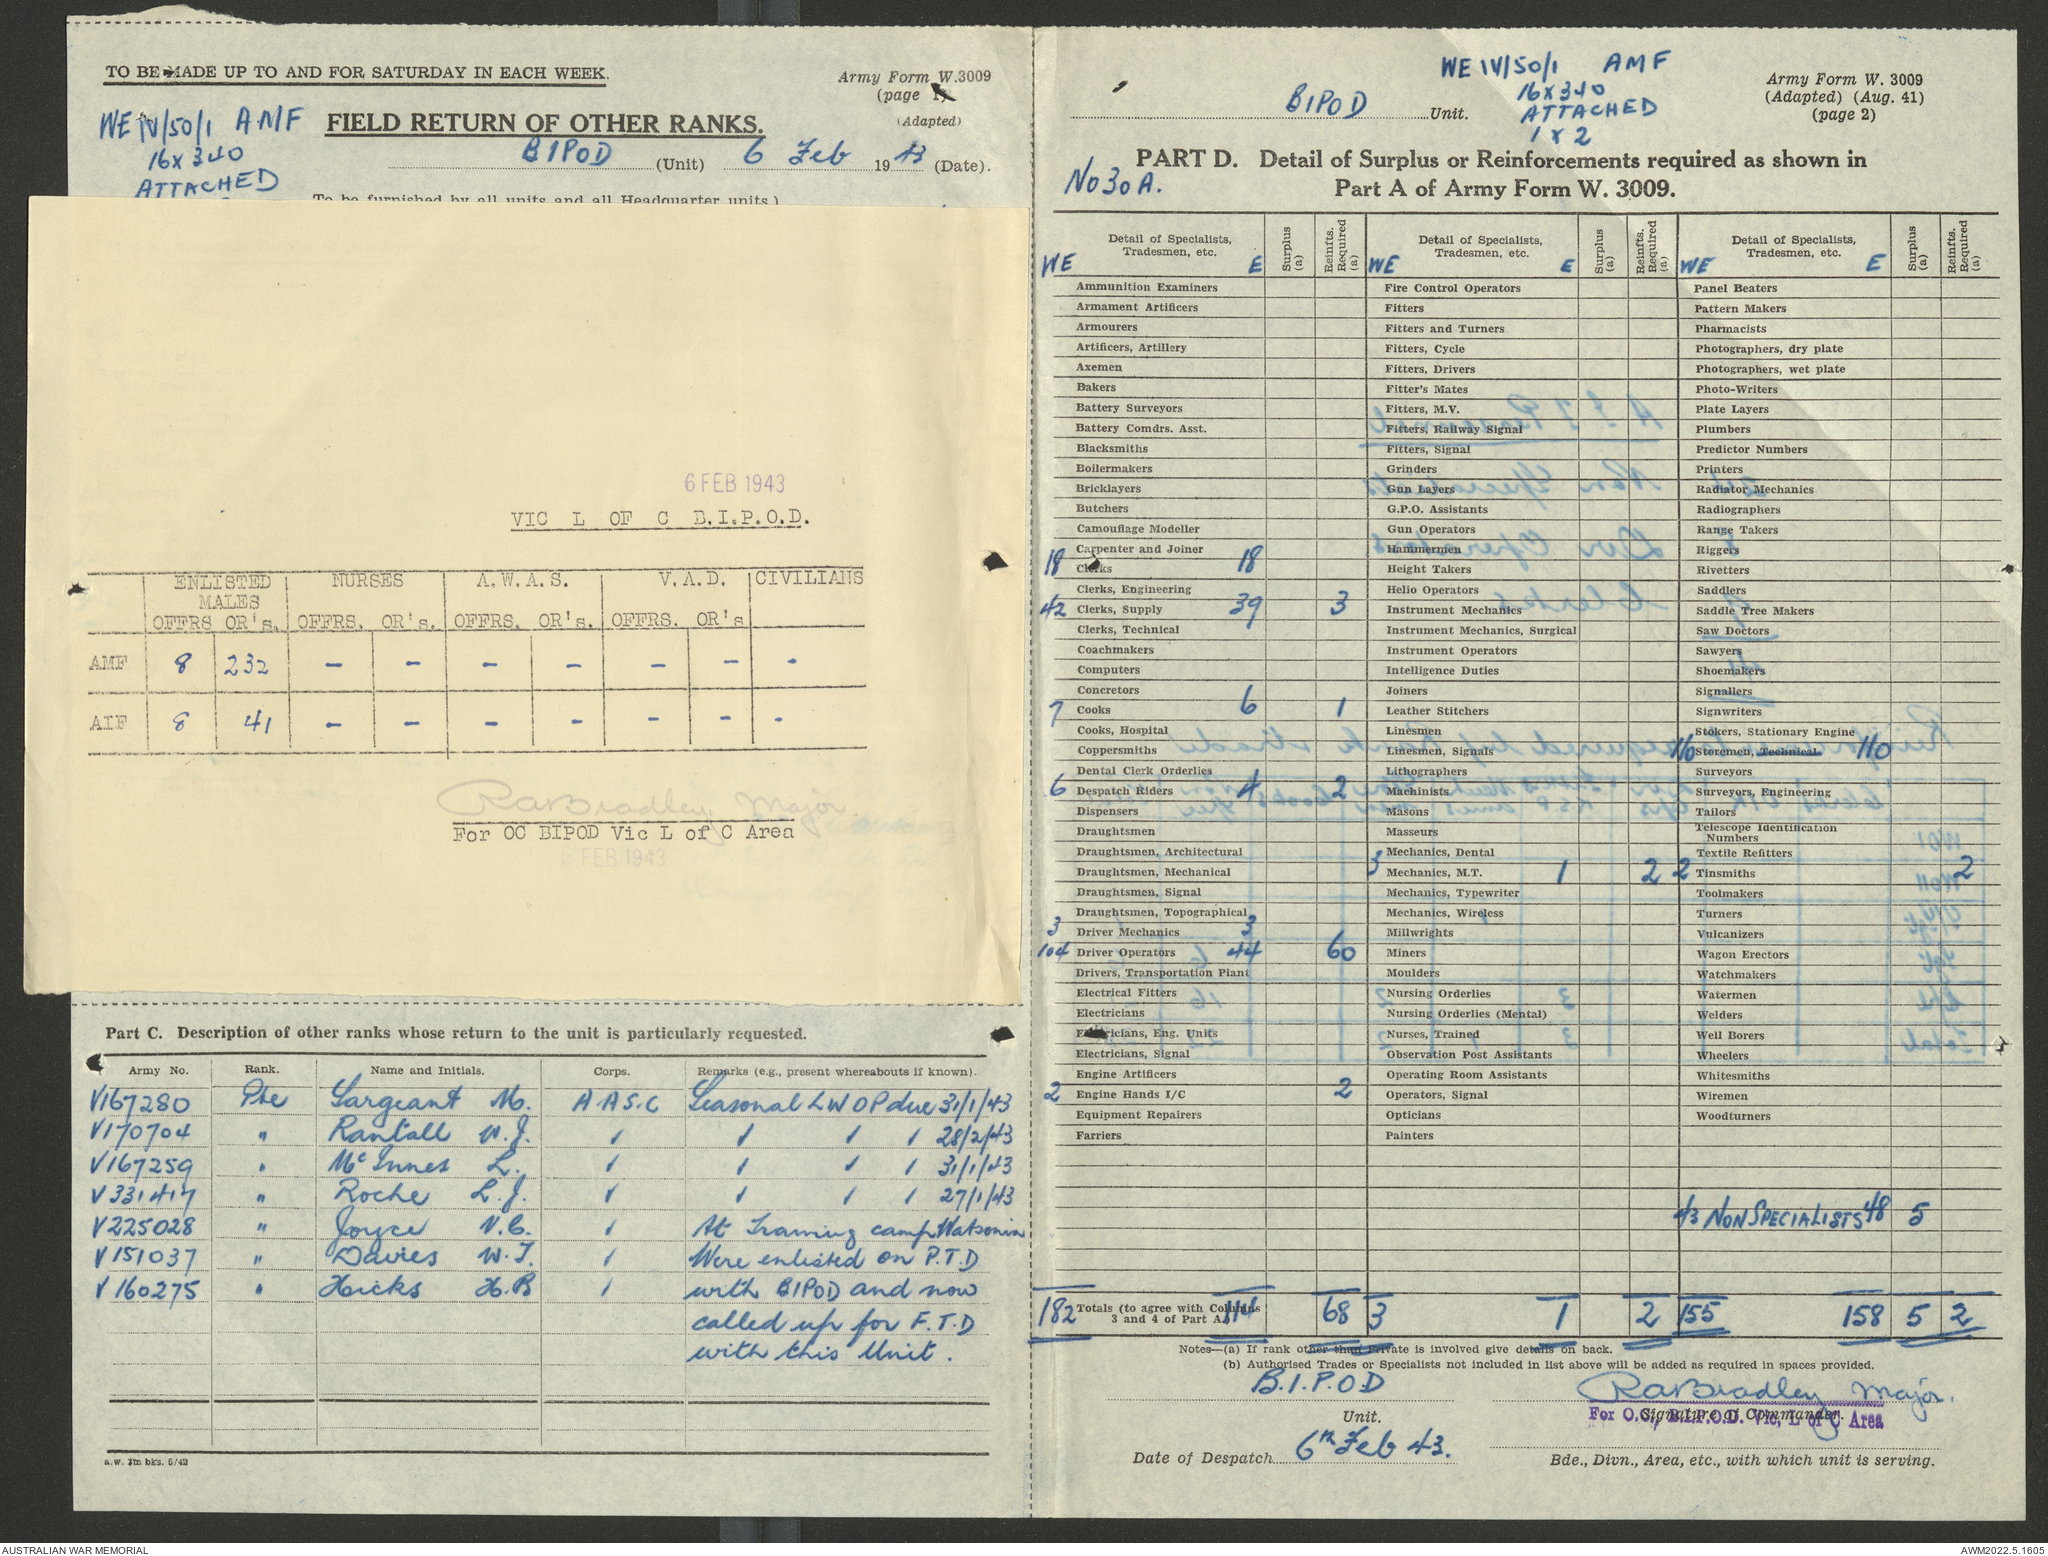 TO BE MADE UP TO AND FOR SATURDAY IN EACH WEEK.
Army Form W.3009
(page 1)
(Adapted)
WE IV/50/1 AMF
16 x 340
ATTACHED
FIELD RETURN OF OTHER RANKS.
BIPOD (Unit) 6 Feb 1943 (Date).
To be furnished by all units and all Headquarter units.)
6 FEB 1943
VIC L OF C B.I.P.O.D.
ENLISTED MALES NURSES A.W.A.S. V.A.D. CIVILIANS
OFFRS OR's. OFFRS. OR's. OFFRS. OR's. OFFRS. OR's
AMF 8 232 - - - - - - -
AIF 8 41 - - - - - - -
RABradley Major
For OC BIPOD Vic L of C Area
6 FEB 1943
Part C. Description of other ranks whose return to the unit is particularly requested.
Army No. Rank. Name and Initials. Corps. Remarks (e.g., present whereabouts if known).
V167280 Pte Sargeant M. A.A.S.C Seasonal LWOP due 31/1/43
V170704 " Rantall W.J. ✓ ✓ ✓ ✓ 28/2/43
V167259 " McInnes L. ✓ ✓ ✓ ✓ 31/1/43
V331417 " Roche L.J. ✓ ✓ ✓ ✓ 27/1/43
V225028 " Joyce V.C. ✓ At Training camp Watsonia
V151037 " Davies W.T. ✓ Were enlisted on P.T.D
V160275 " Hicks H.B ✓ with BIPOD and now
called up for F.T.D
with this Unit.
a.w. 3m bks. 5/42
BIPOD Unit.
WE IV/50/1 AMF
16 x 340
ATTACHED
1 x 2
Army Form W. 3009
(Adapted) (Aug. 41)
(page 2)
No 30A.
PART D. Detail of Surplus or Reinforcements required as shown in
Part A of Army Form W. 3009.
WE Detail of Specialists, Tradesmen, etc. E Surplus (a) Reinfts. Required (a)
Ammunition Examiners
Armament Artificers
Armourers
Artificers, Artillery
Axemen
Bakers
Battery Surveyors
Battery Comdrs. Asst.
Blacksmiths
Boilermakers
Bricklayers
Butchers
Camouflage Modeller
Carpenter and Joiner
18 Clerks 18
Clerks, Engineering
42 Clerks, Supply 39 3
Clerks, Technical
Coachmakers
Computers
Concretors
7 Cooks 6 1
Cooks, Hospital
Coppersmiths
Dental Clerk Orderlies
6 Despatch Riders 4 2
Dispensers
Draughtsmen
Draughtsmen, Architectural
Draughtsmen, Mechanical
Draughtsmen, Signal
Draughtsmen, Topographical
3 Driver Mechanics 3
104 Driver Operators 44 60
Drivers, Transportation Plant
Electrical Fitters
Electricians
Electricians, Eng. Units
Electricians, Signal
Engine Artificers
2 Engine Hands I/C 2
Equipment Repairers
Farriers
WE Detail of Specialists, Tradesmen, etc. E Surplus (a) Reinfts. Required (a)
Fire Control Operators
Fitters
Fitters and Turners
Fitters, Cycle
Fitters, Drivers
Fitter's Mates
Fitters, M.V.
Fitters, Railway Signal
Fitters, Signal
Grinders
Gun Layers
G.P.O. Assistants
Gun Operators
Hammermen
Height Takers
Helio Operators
Instrument Mechanics
Instrument Mechanics, Surgical
Instrument Operators
Intelligence Duties
Joiners
Leather Stitchers
Linesmen
Linesmen, Signals
Lithographers
Machinists
Masons
Masseurs
Mechanics, Dental
3 Mechanics, M.T. 1 2
Mechanics, Typewriter
Mechanics, Wireless
Millwrights
Miners
Moulders
Nursing Orderlies
Nursing Orderlies (Mental)
Nurses, Trained
Observation Post Assistants
Operating Room Assistants
Operators, Signal
Opticians
Painters
WE Detail of Specialists, Tradesmen, etc. E Surplus (a) Reinfts. Required (a)
Panel Beaters
Pattern Makers
Pharmacists
Photographers, dry plate
Photographers, wet plate
Photo-Writers
Plate Layers
Plumbers
Predictor Numbers
Printers
Radiator Mechanics
Radiographers
Range Takers
Riggers
Rivetters
Saddlers
Saddle Tree Makers
Saw Doctors
Sawyers
Shoemakers
Signallers
Signwriters
Stokers, Stationary Engine
110 Storemen, Technical 110
Surveyors
Surveyors, Engineering
Tailors
Telescope Identification Numbers
Textile Refitters
2 Tinsmiths 2
Toolmakers
Turners
Vulcanizers
Wagon Erectors
Watchmakers
Watermen
Welders
Well Borers
Wheelers
Whitesmiths
Wiremen
Woodturners
43 NON SPECIALISTS 48 5
182 Totals (to agree with Columns 3 and 4 of Part A.) 114 68 3 1 2 155 158 5 2
Notes—(a) If rank other than Private is involved give details on back.
(b) Authorised Trades or Specialists not included in list above will be added as required in spaces provided.
B.I.P.O.D
Unit.
RABradley Major.
Signature of Commander.
For O.C., B.I.P.O.D. Vic, L of C Area
Date of Despatch 6th Feb 43.
Bde., Divn., Area, etc., with which unit is serving.
AUSTRALIAN WAR MEMORIAL
AWM2022.5.1605